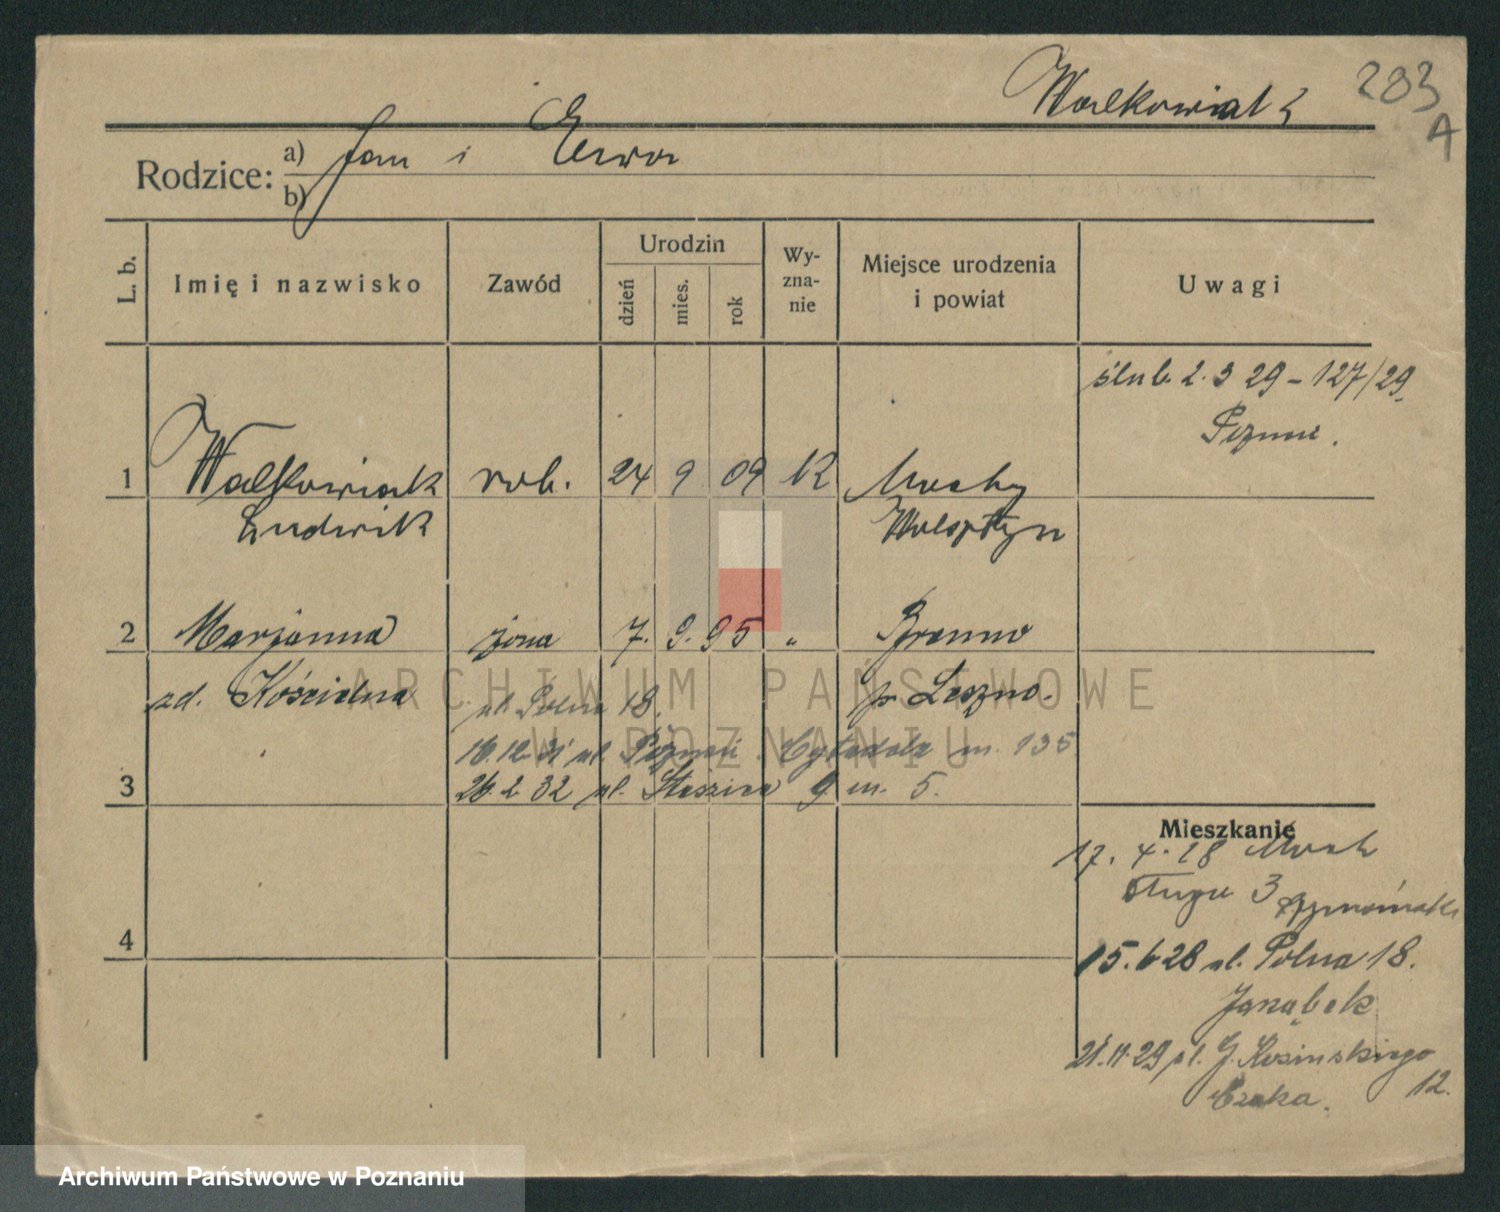 Walkowiak
283
A
Rodzice: a) Jan i Ewa
b)
L. b.
Imię i nazwisko
Zawód
Urodzin
dzień
mies.
rok
Wy-
zna-
nie
Miejsce urodzenia
i powiat
Uwagi
ślub. 2. 3 29 - 127/29
Poznań.
1 Walkowiak rob. 24 9 09 K Mochy
Ludwik Wolsztyn
2 Marjanna żona 7. 9. 95 " Brenno
zd. Kościelna p. Leszno.
ul. Polna 18.
16.12.31 ul. Poznań Cytadela m. 135
3 26.2.32 ul. Staszica 9 m. 5.
Mieszkanie
17. 4. 28
Długa 3
4
15.6 28 ul. Polna 18.
21.11.29 ul. G. Kosinskiego
12.
ARCHIWUM PAŃSTWOWE
W POZNANIU
Archiwum Państwowe w Poznaniu